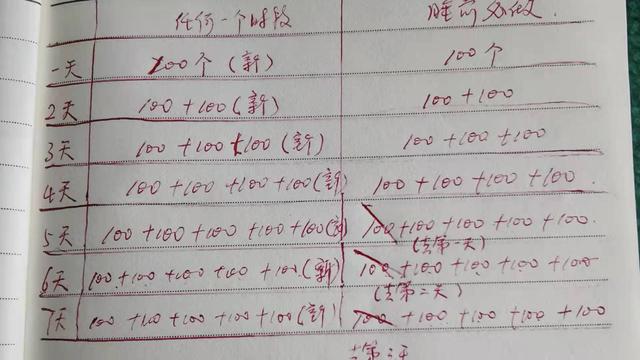 任何一个时段 睡前必做
一天 100个(新) 100个
2天 100+100(新) 100+100
3天 100+100+100(新) 100+100+100
4天 100+100+100+100(新) 100+100+100+100.
5天 100+100+100+100+100(新) 100+100+100+100+100.
(去第一天)
6天 100+100+100+100+100(新) 100+100+100+100+100
(去第二天)
7天 100+100+100+100+100(新) 100+100+100+100+100
去第三天